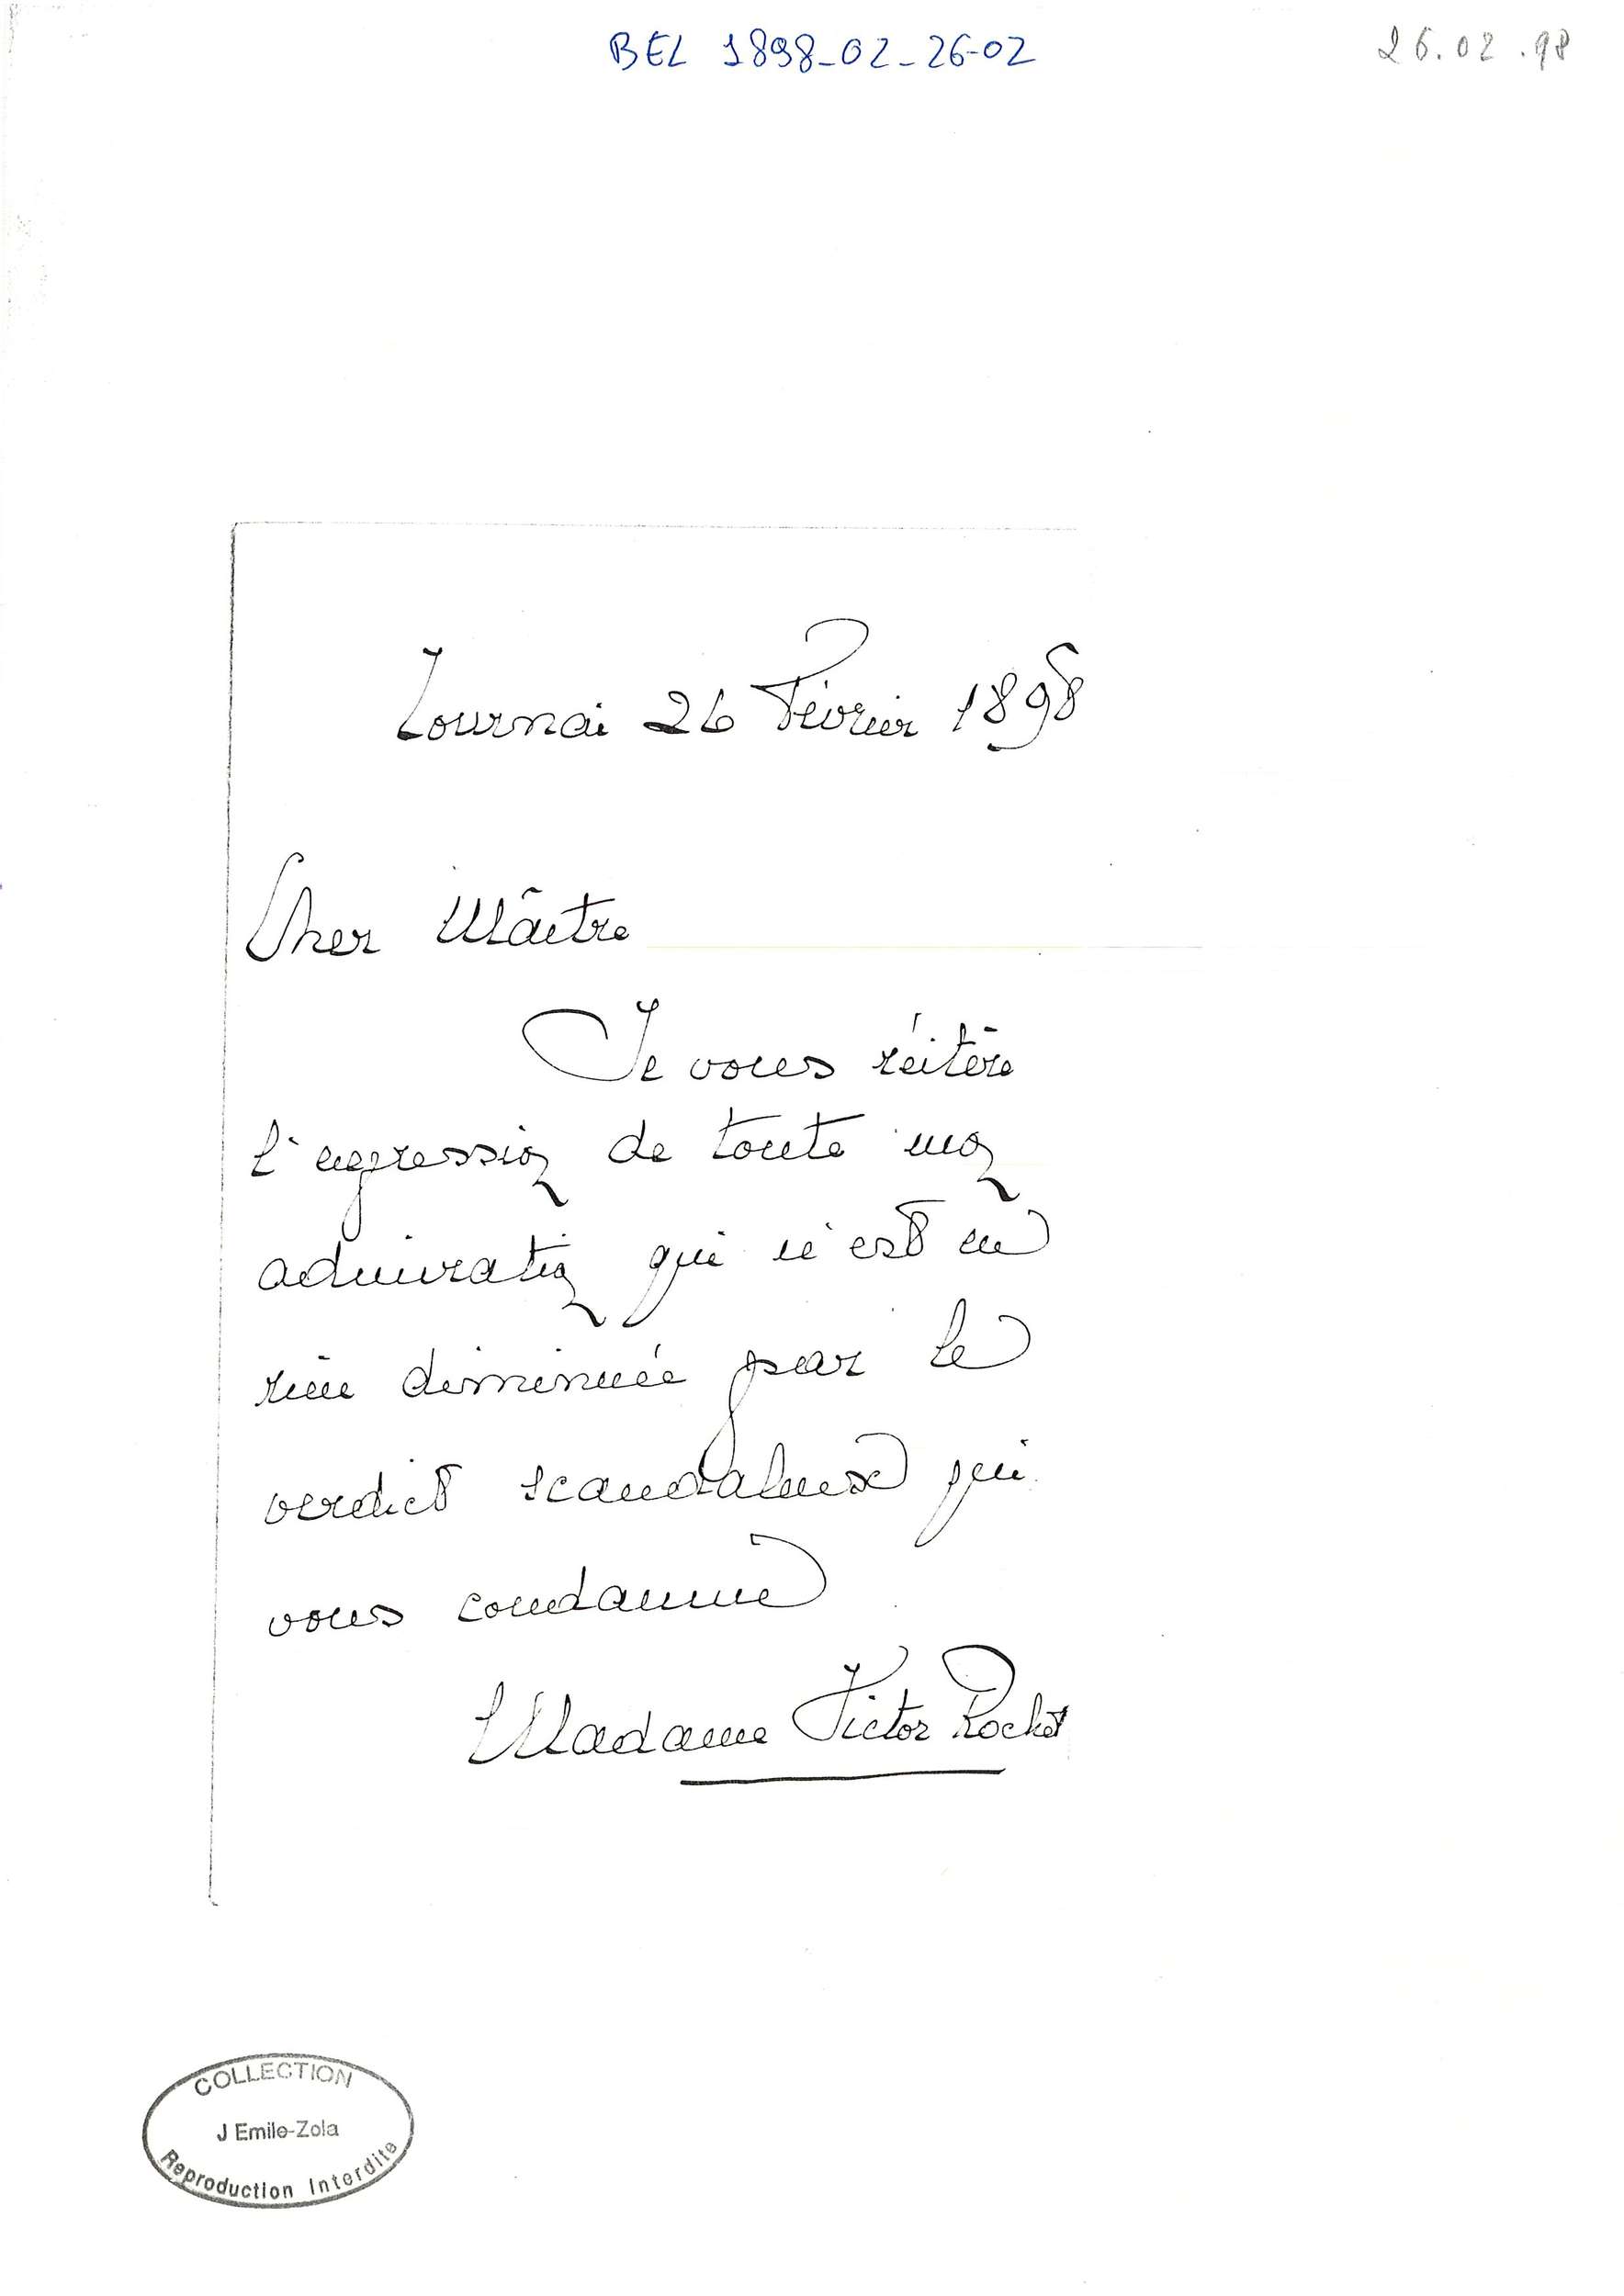 BEL 1898-02-26-02
26.02.98
Tournai 26 Février 1898
Cher Mâitre
Je vous réitère
l'expression de toute mon
admiration qui n'est en
rien diminuée par le
verdict scandaleux qui
vous condamne
Madame Victor Rochet
COLLECTION
J Emile-Zola
Reproduction Interdite